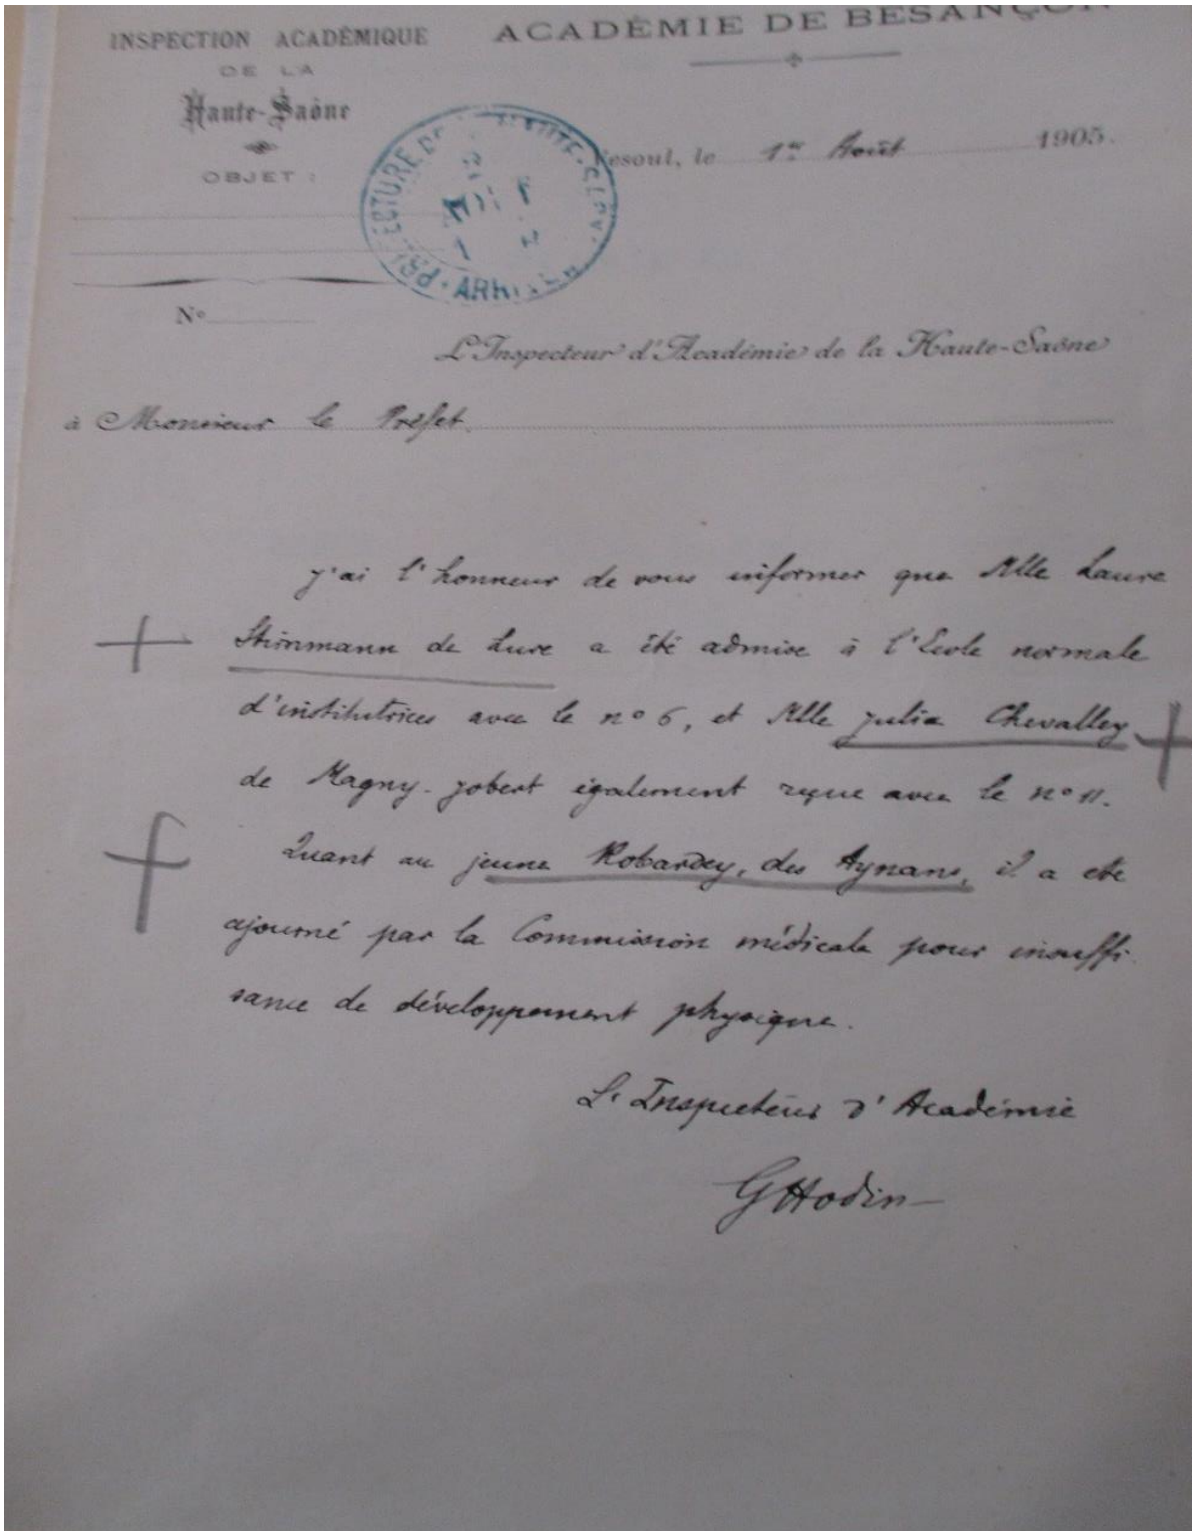 INSPECTION ACADÉMIQUE
DE LA
Haute-Saône
OBJET :
Nº
ACADÉMIE DE BESANÇON
Vesoul, le 1er Août 1905.
ARRIVÉE
L'Inspecteur d'Académie de la Haute-Saône
à Monsieur le Préfet
J'ai l'honneur de vous informer que Mlle Laure
Stirnmann de Lure a été admise à l'Ecole normale
d'institutrices avec le nº 6, et Mlle Julia Chevalley
de Magny-Jobert également reçue avec le nº 11.
Quant au jeune Robardey, des Aynans, il a été
ajourné par la Commission médicale pour insuffi-
sance de développement physique.
L'Inspecteur d'Académie
GHodin